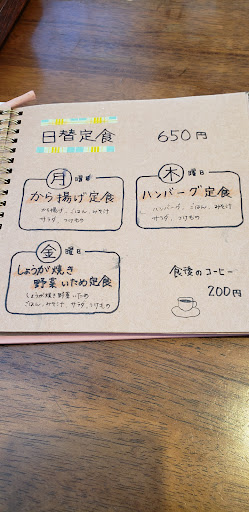 日替定食 650円
月曜日
から揚げ定食
から揚げ、ごはん、みそ汁
サラダ、つけもの
木曜日
ハンバーグ定食
ハンバーグ、ごはん、みそ汁
サラダ、つけもの
金曜日
しょうが焼き
野菜いため定食
しょうが焼き野菜いため
ごはん、みそ汁、サラダ、つけもの
食後のコーヒー
200円